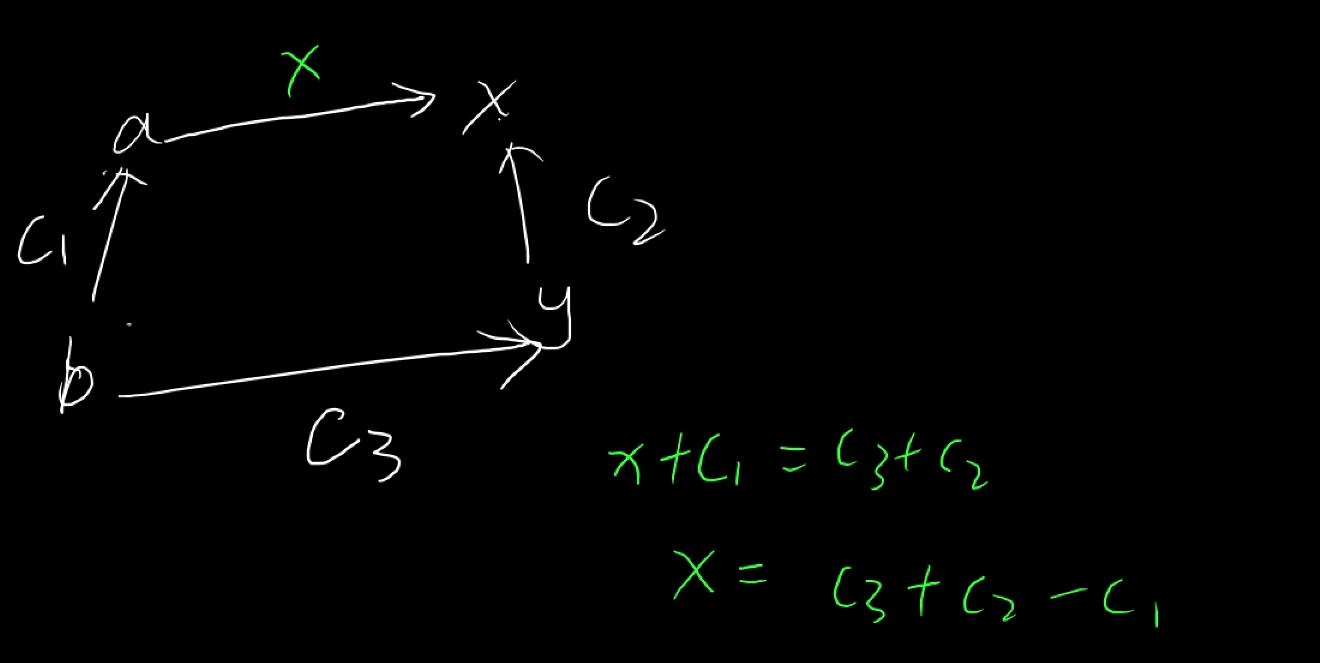 X
a
x
C1
C2
y
b
C3
x+C1 = C3+C2
X = C3+C2-C1